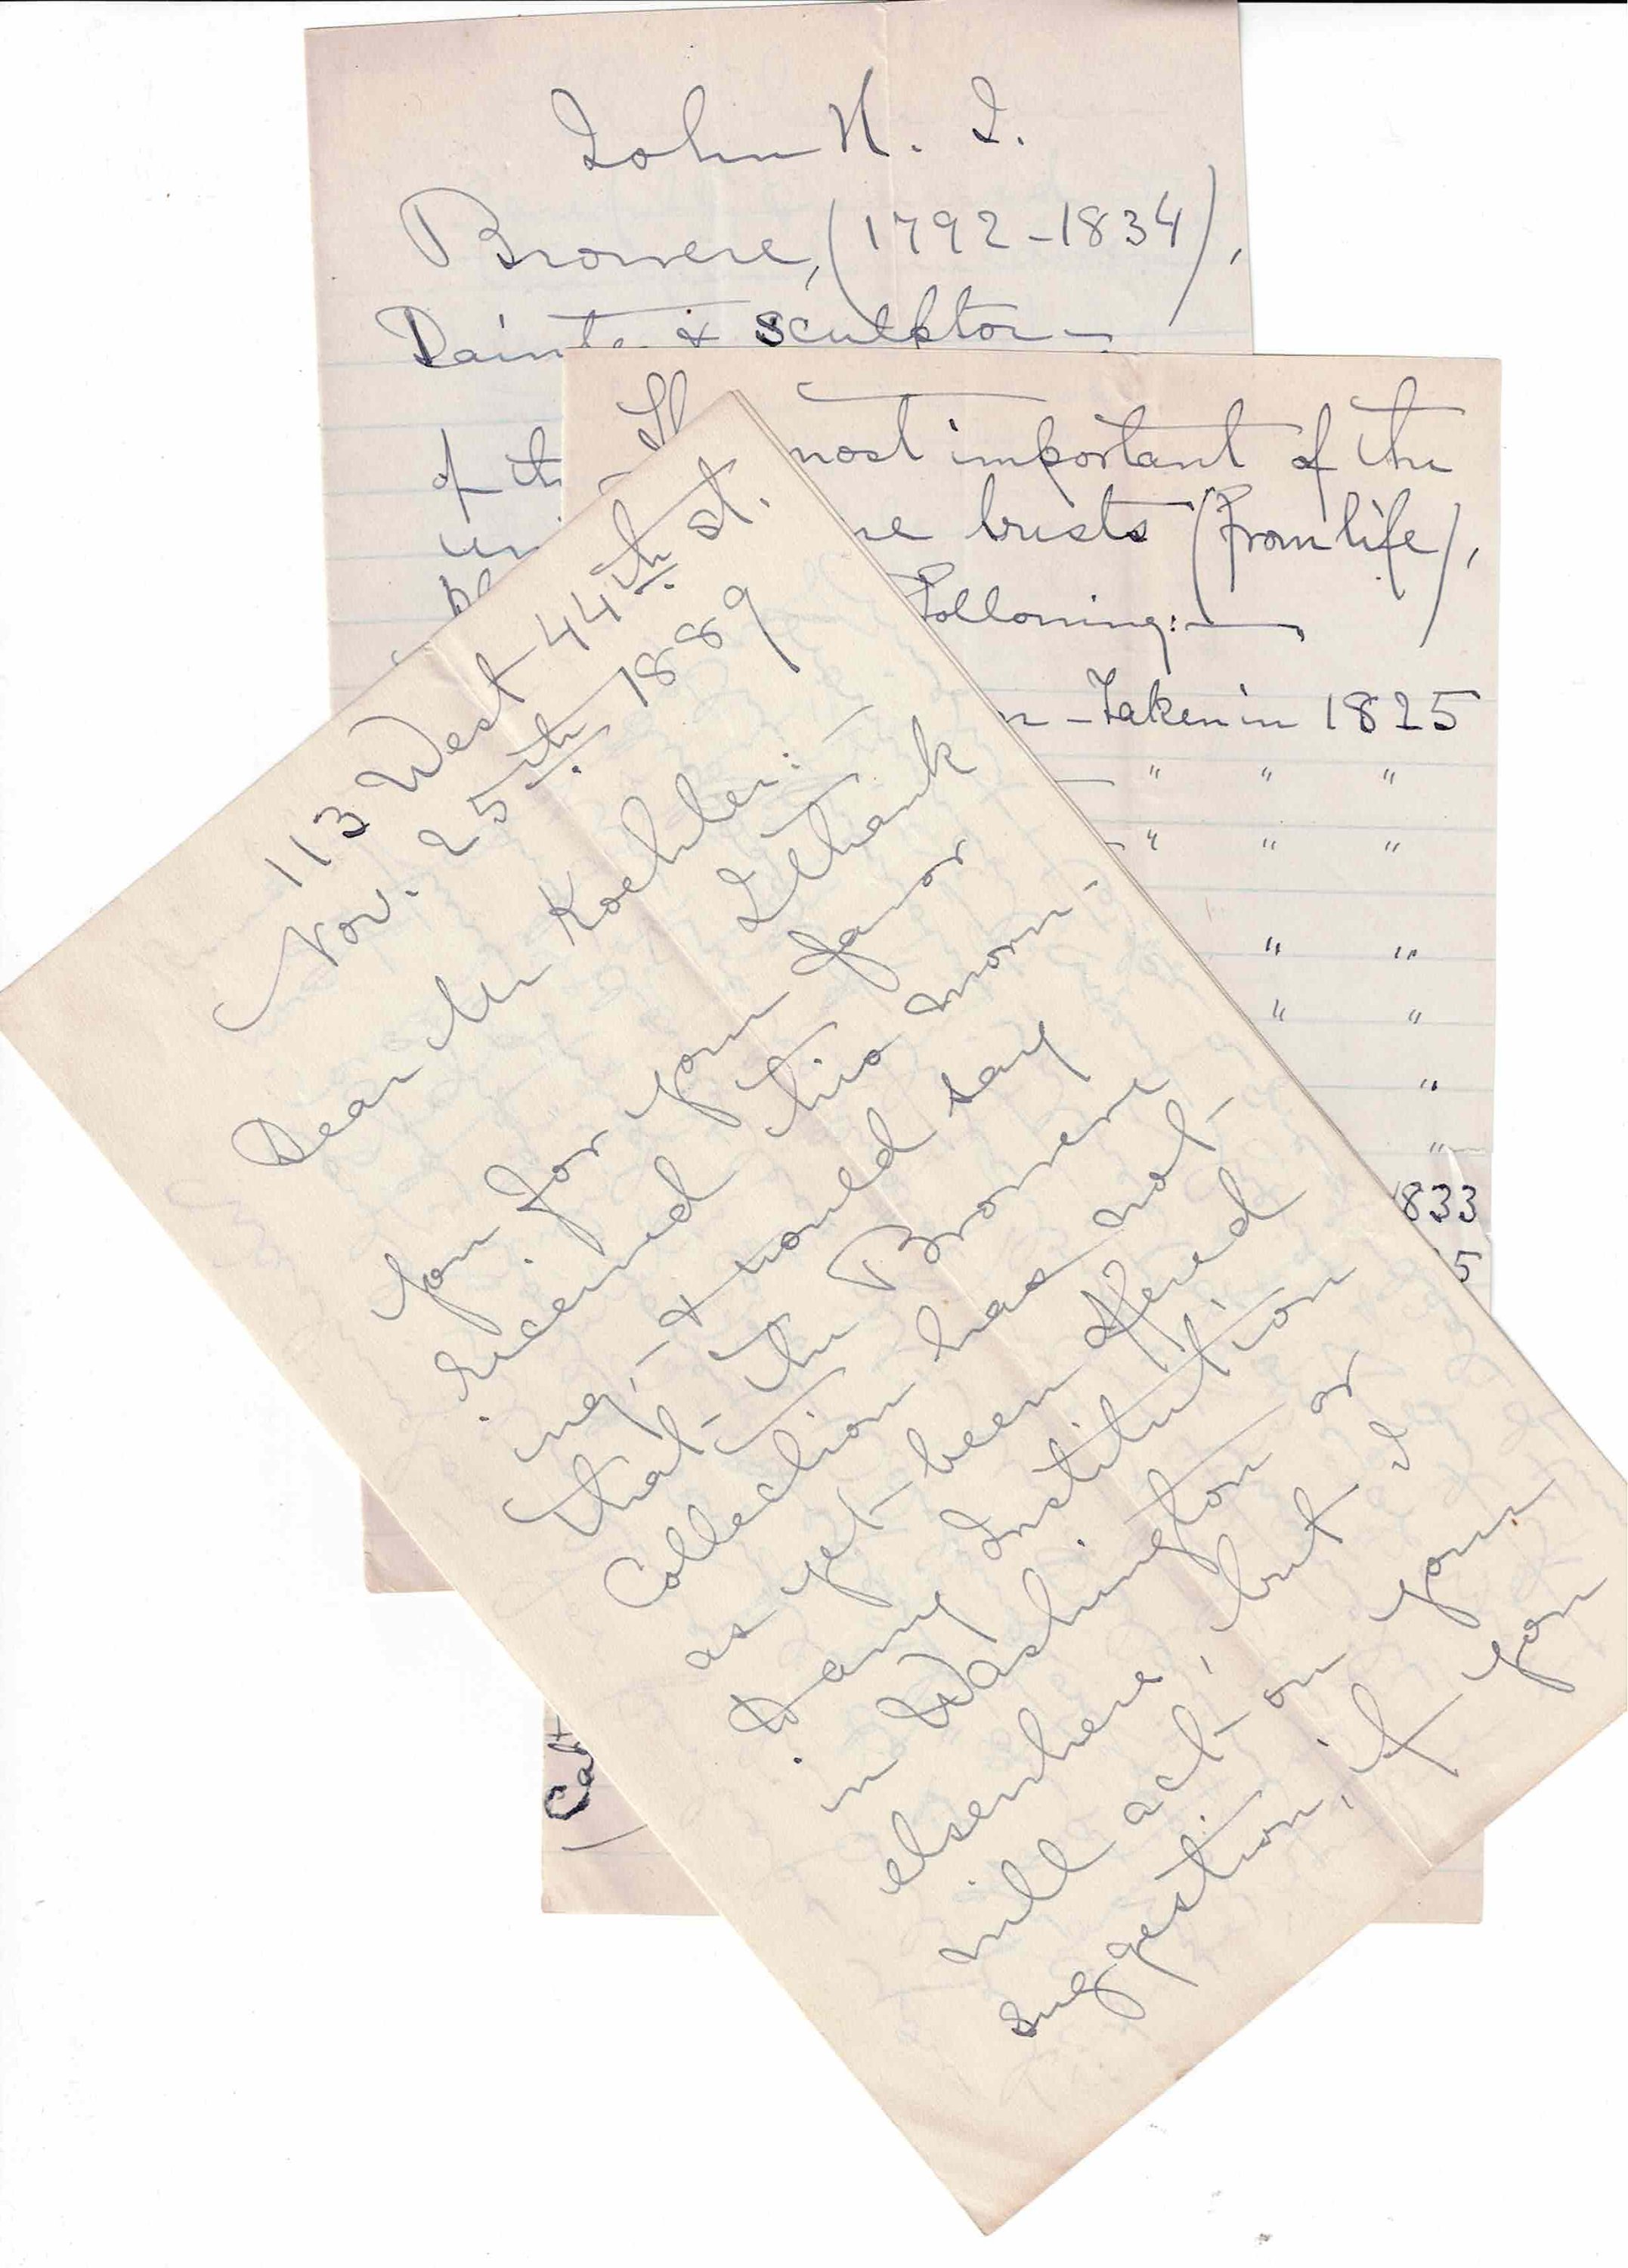 John H. I.
Browere, (1792-1834),
Painte & Sculptor —
of th
un
The most important of the
ne busts (from life),
Following: —
n - Taken in 1825
— " " "
— " " "
" "
" "
"
"
1833
5
Cat
113 West 44th St.
Nov. 25th 1889
Dear Mr Koehler: —
I thank
you for your favor
received this morn-
ing, & would say
that the Browere
Collection has not
as yet been offered
to any Institution
in Washington or
elsewhere, but I
will act on your
suggestion, if you